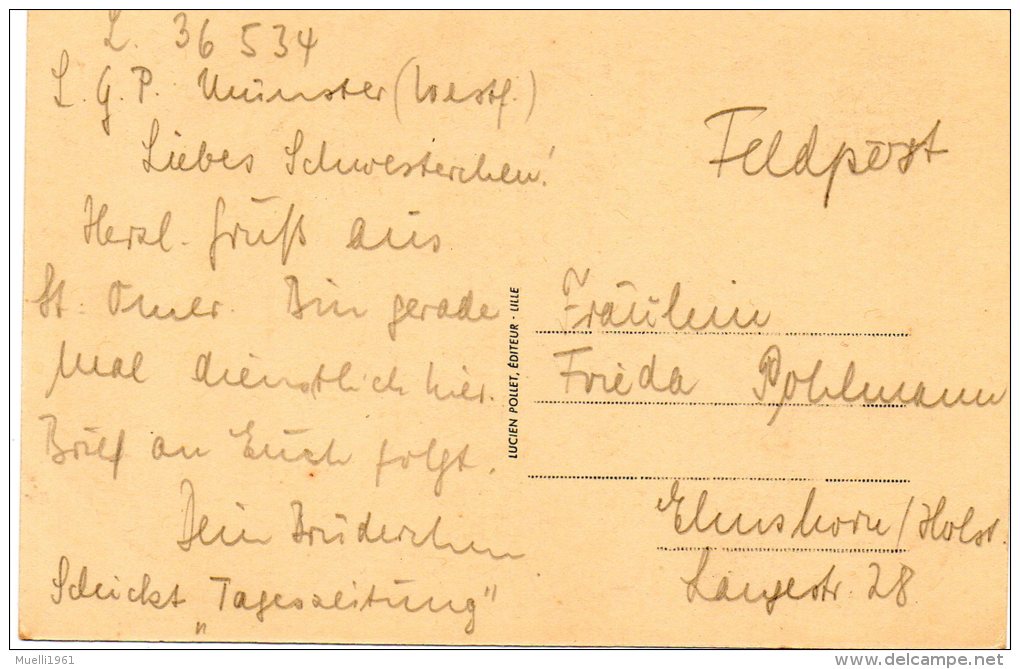 L. 36 534
L. G. P. Münster (Westf.)
Liebes Schwesterchen!
Herzl. Gruß aus
St. Omer. Bin gerade
mal dienstlich hier.
Brief an Euch folgt.
Dein Brüderchen
Schickt „Tageszeitung"
LUCIEN POLLET, ÉDITEUR - LILLE
Feldpost
Fräulein
Frieda Pohlmann
Elmshorn / Holst.
Langestr. 28
Muelli1961
www.delcampe.net